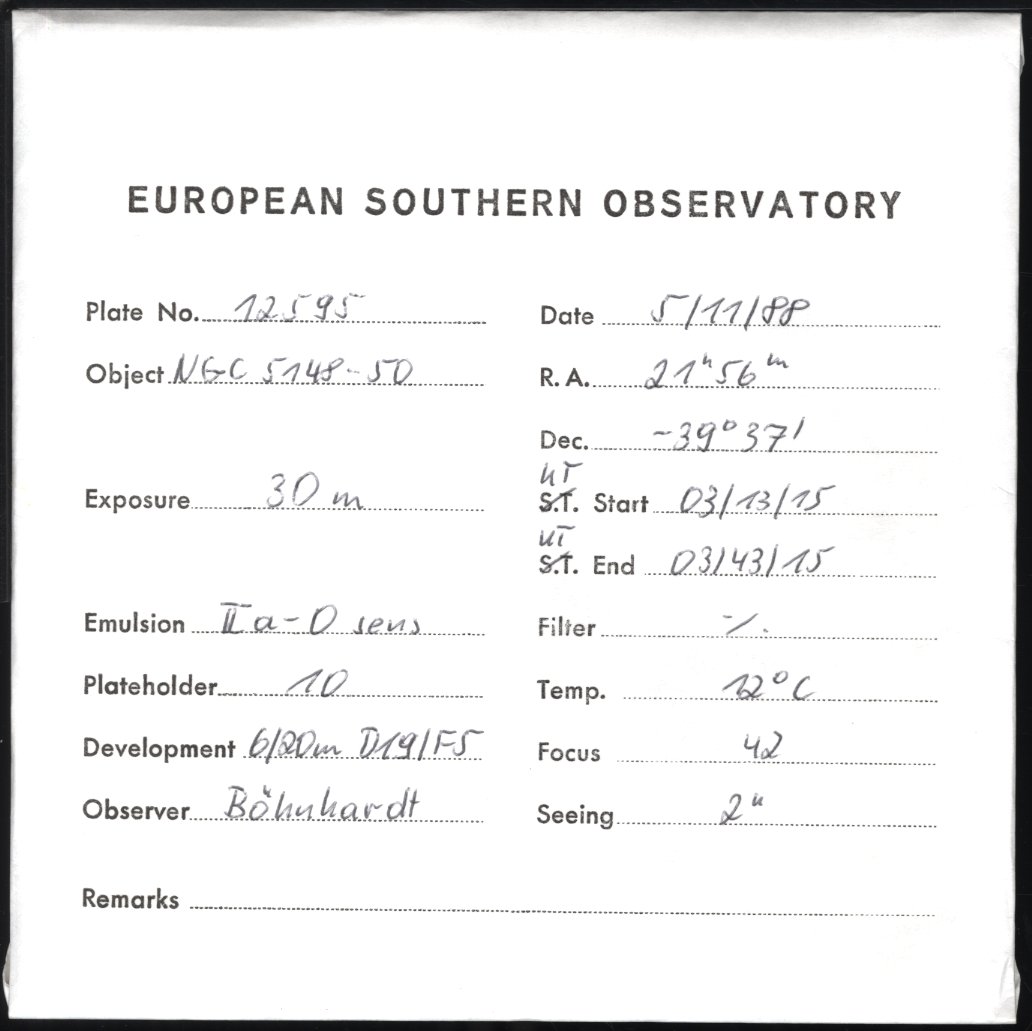 EUROPEAN SOUTHERN OBSERVATORY
Plate No. 12595 Date 5/11/88
Object NGC 5148-50 R. A. 21h56m
Dec. -39°37'
UT
Exposure 30 m S.T. Start 03/13/15
UT
S.T. End 03/43/15
Emulsion IIa-O sens Filter -/.
Plateholder 10 Temp. 12°C
Development 6/20m D19/F5 Focus 42
Observer Böhnhardt Seeing 2"
Remarks